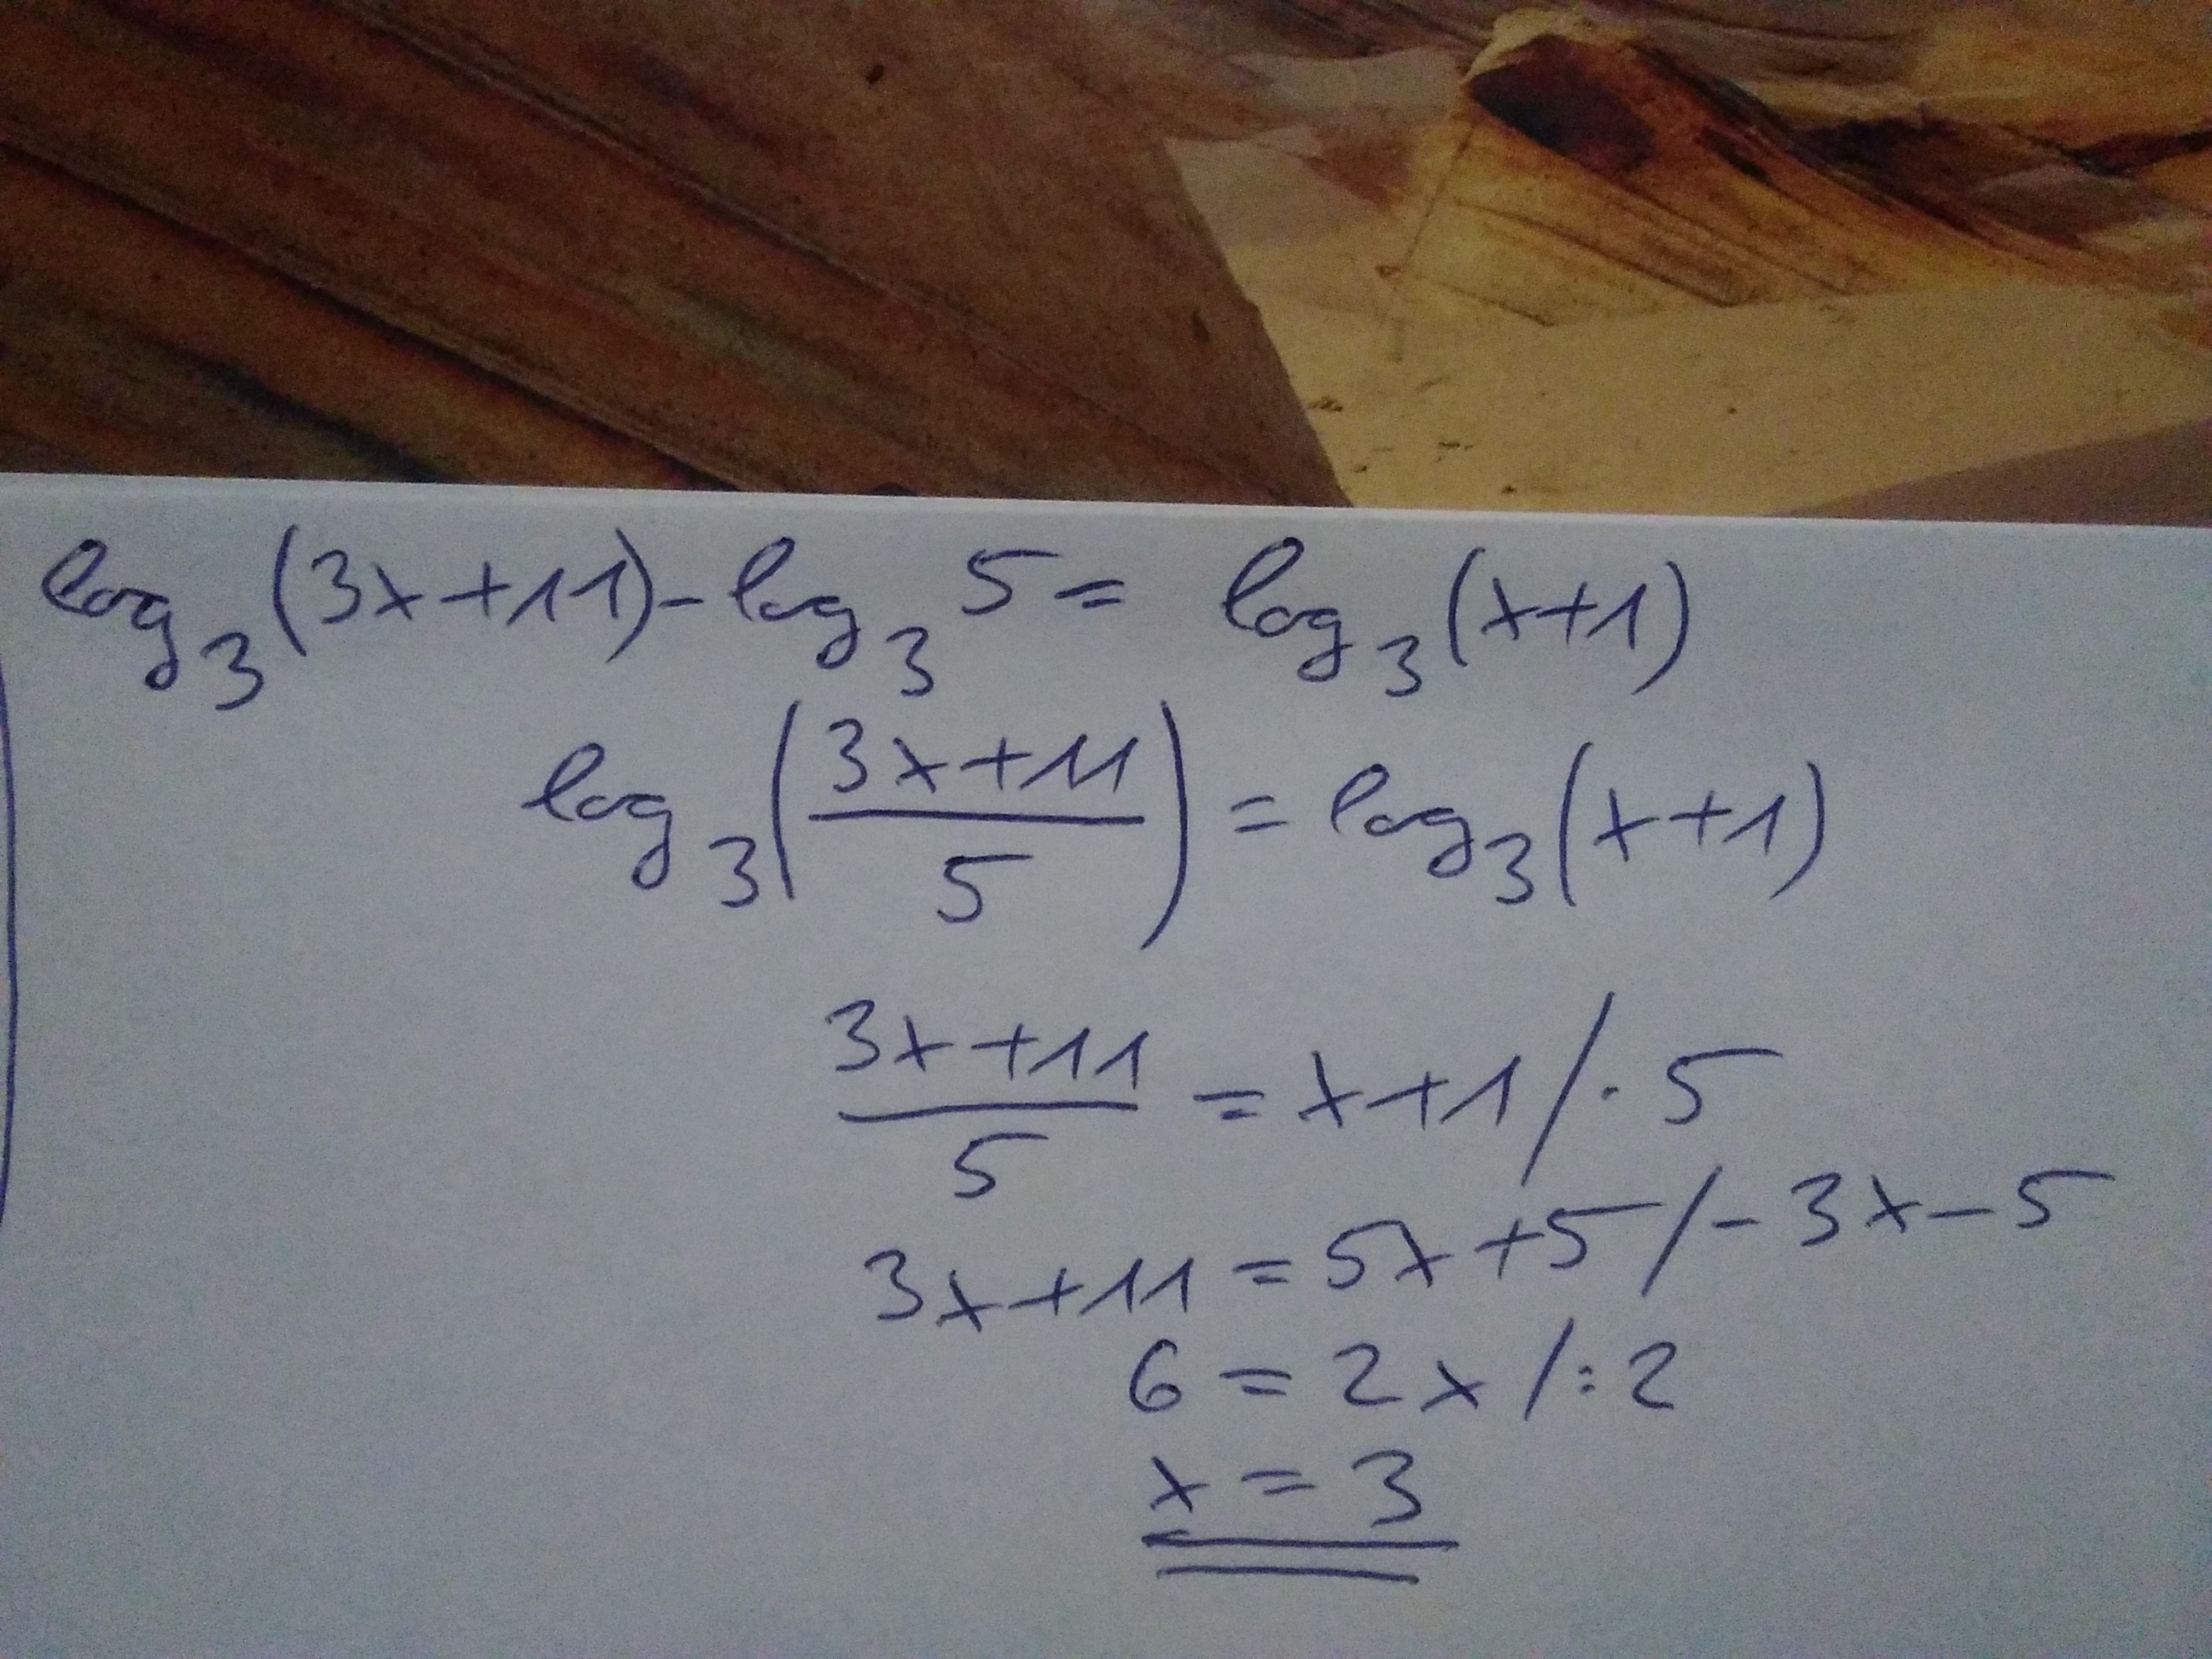 log₃(3x+11)-log₃5 = log₃(x+1)
log₃((3x+11)/5) = log₃(x+1)
(3x+11)/5 = x+1 /·5
3x+11 = 5x+5 /-3x-5
6 = 2x /:2
x = 3